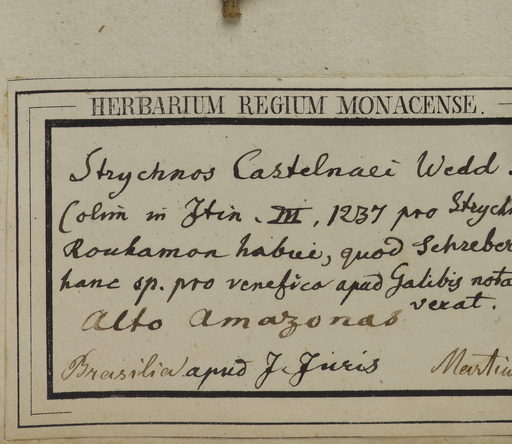 HERBARIUM REGIUM MONACENSE.
Strychnos Castelnaei Wedd.
(olim in Itin. III, 1237 pro Strychn
Rouhamon habui, quod Schreber
hanc sp. pro venefica apud Galibis nota
verat.
Alto Amazonas
Brasilia apud J. Juris Martiu